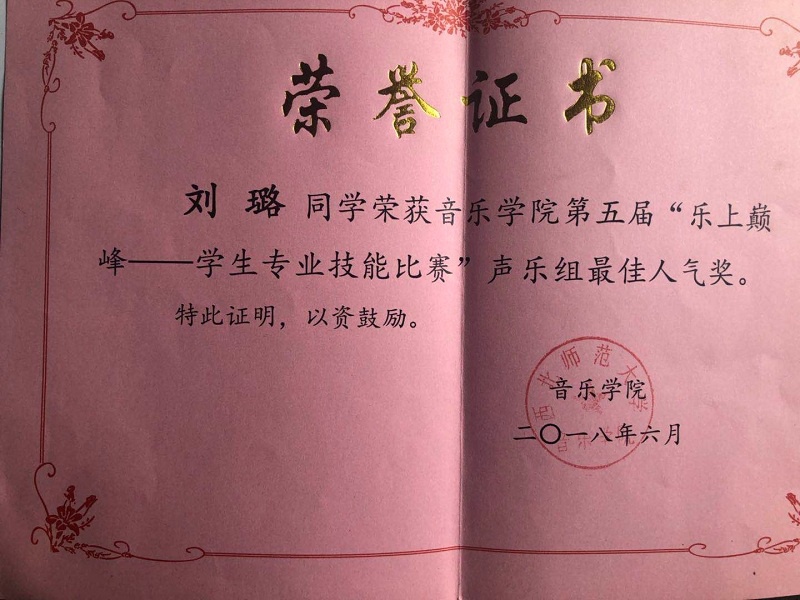 荣誉证书
刘璐 同学荣获音乐学院第五届“乐上巅
峰——学生专业技能比赛”声乐组最佳人气奖。
特此证明，以资鼓励。
西北师范大学
音乐学院
音乐学院
二〇一八年六月